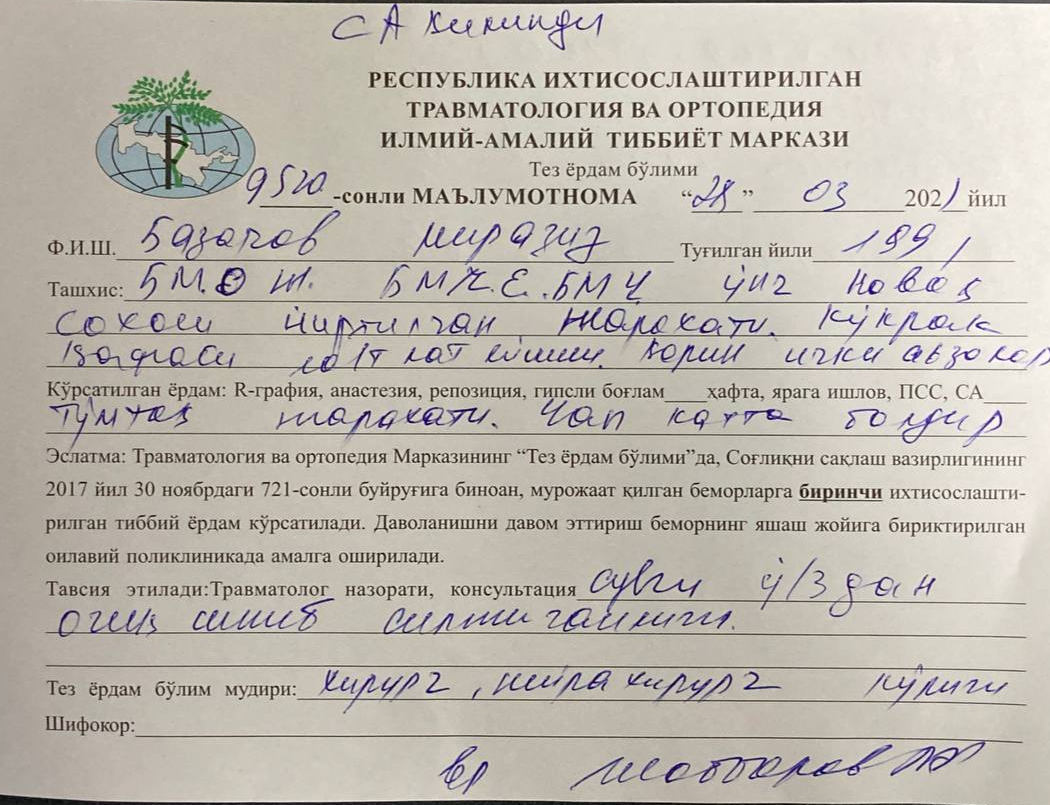 СА килинди
РЕСПУБЛИКА ИХТИСОСЛАШТИРИЛГАН
ТРАВМАТОЛОГИЯ ВА ОРТОПЕДИЯ
ИЛМИЙ-АМАЛИЙ ТИББИЁТ МАРКАЗИ
Тез ёрдам бўлими
9520-сонли МАЪЛУМОТНОМА “28” 03 2021 йил
Ф.И.Ш. Базаров миразиз Туғилган йили 1991
Ташхис: БМ.Ө Ж. БМЧ.Е.БМЧ ўнг
сохаси йиртилган жарохати. Кўкрак
қафаси лат ейиши. Қорин ички аъзолар
Кўрсатилган ёрдам: R-графия, анастезия, репозиция, гипсли боғлам____ҳафта, ярага ишлов, ПСС, СА____
тўмтоқ жарахати. Чап катта болдир
Эслатма: Травматология ва ортопедия Марказининг “Тез ёрдам бўлими”да, Соғлиқни сақлаш вазирлигининг
2017 йил 30 ноябрдаги 721-сонли буйруғига биноан, мурожаат қилган беморларга биринчи ихтисослашти-
рилган тиббий ёрдам кўрсатилади. Даволанишни давом эттириш беморнинг яшаш жойига бириктирилган
оилавий поликлиникада амалга оширилади.
Тавсия этилади:Травматолог назорати, консультация суяги ў/3 дан
очиқ синиб силжиганлиги.
Тез ёрдам бўлим мудири: хирург, нейрахирург кўриги
Шифокор:
вр